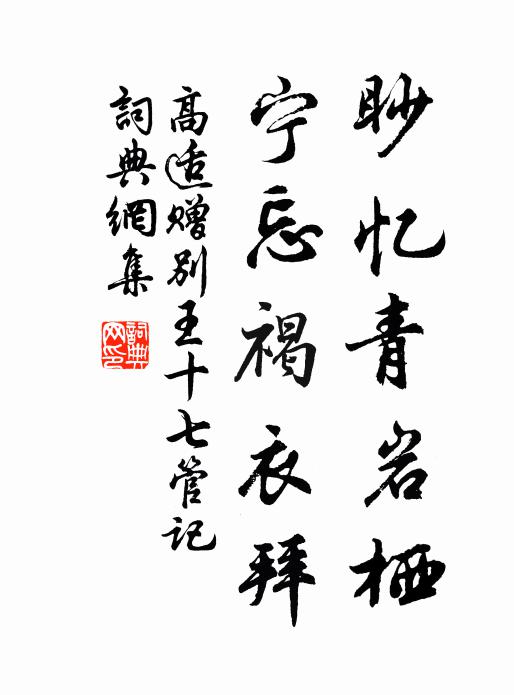 眇忆青岩栖
宁忘褐衣拜
高适赠别王十七管记
詞典網集
詞典网印